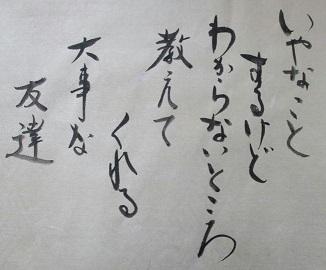 いやなこと
するけど
わからないところ
教えて
くれる
大事な
友達